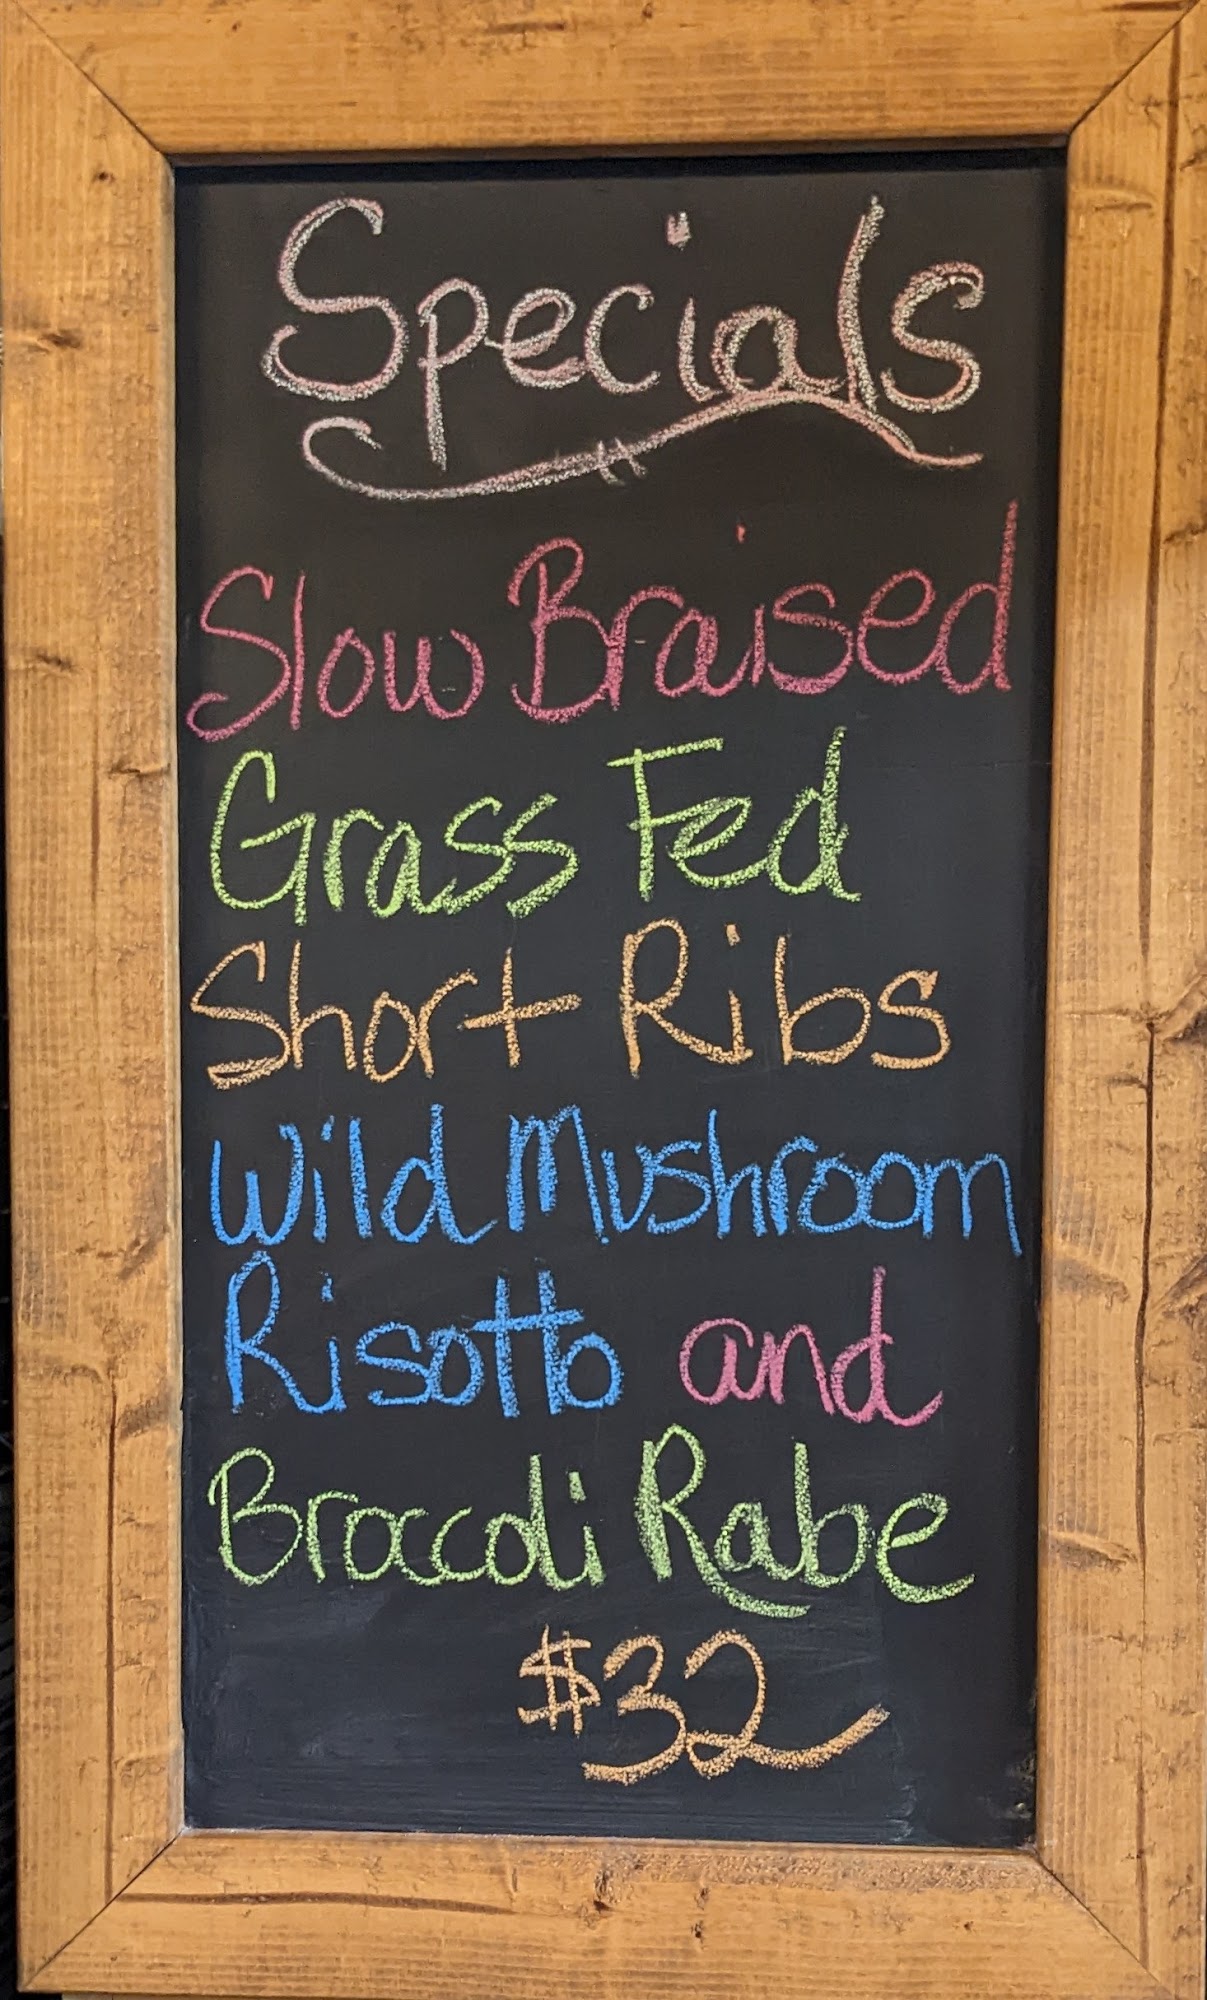 Specials
Slow Braised
Grass Fed
Short Ribs
Wild Mushroom
Risotto and
Broccoli Rabe
$32